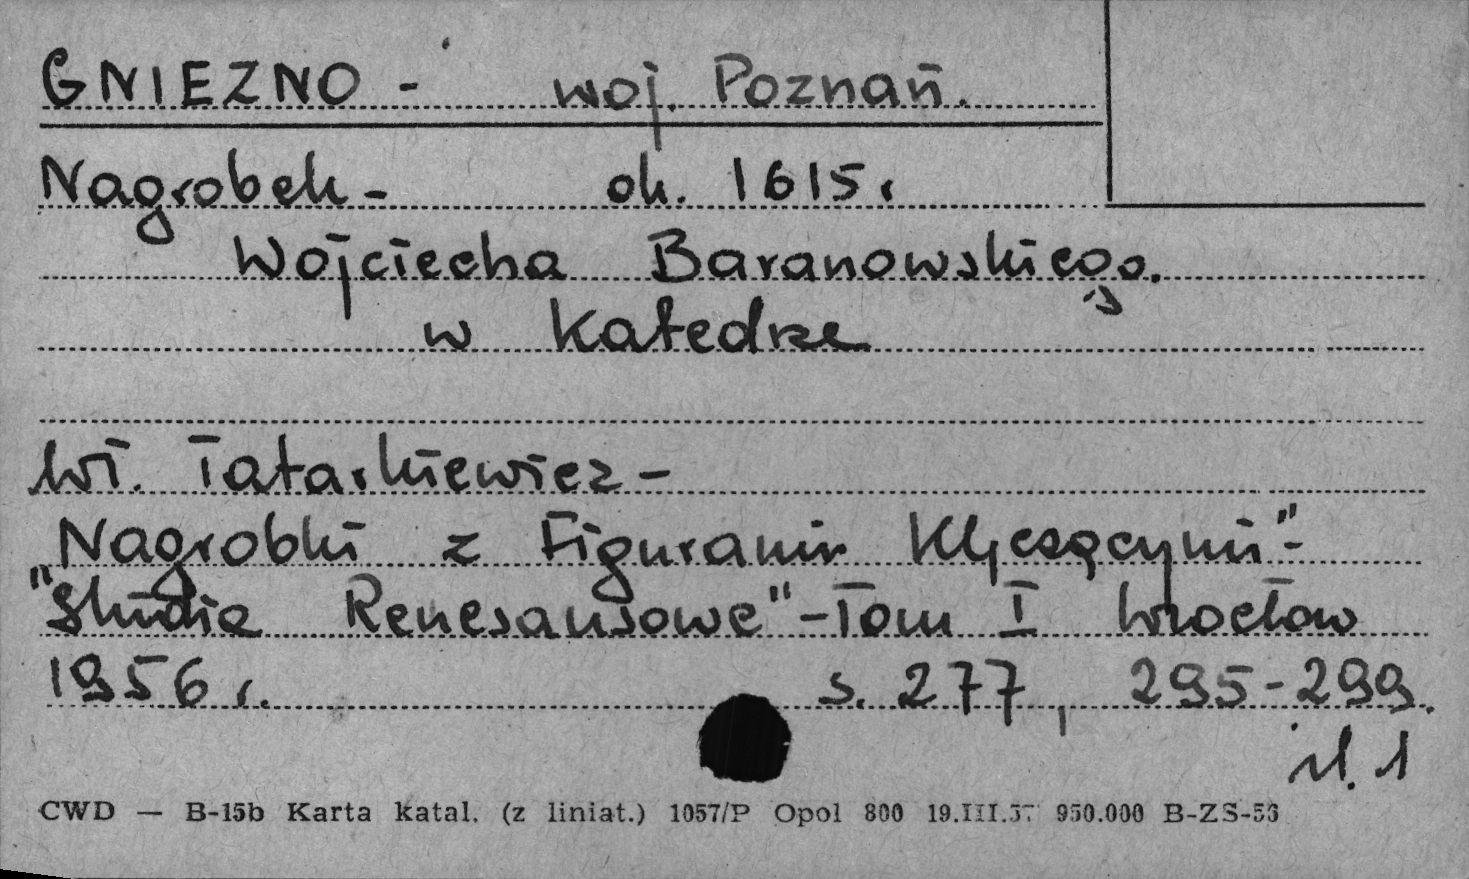 GNIEZNO - woj. Poznań.
Nagrobek - ok. 1615 r
Wojciecha Baranowskiego.
w Katedrze
Wł. Tatarkiewicz -
Nagrobki z Figurami Klęczącymi" -
"Studia Renesansowe" - Tom I Wrocław
1956 r. s. 277, 295-299.
il. 1
CWD — B-15b Karta katal. (z liniat.) 1057/P Opol 800 19.III.57 950.000 B-ZS-53